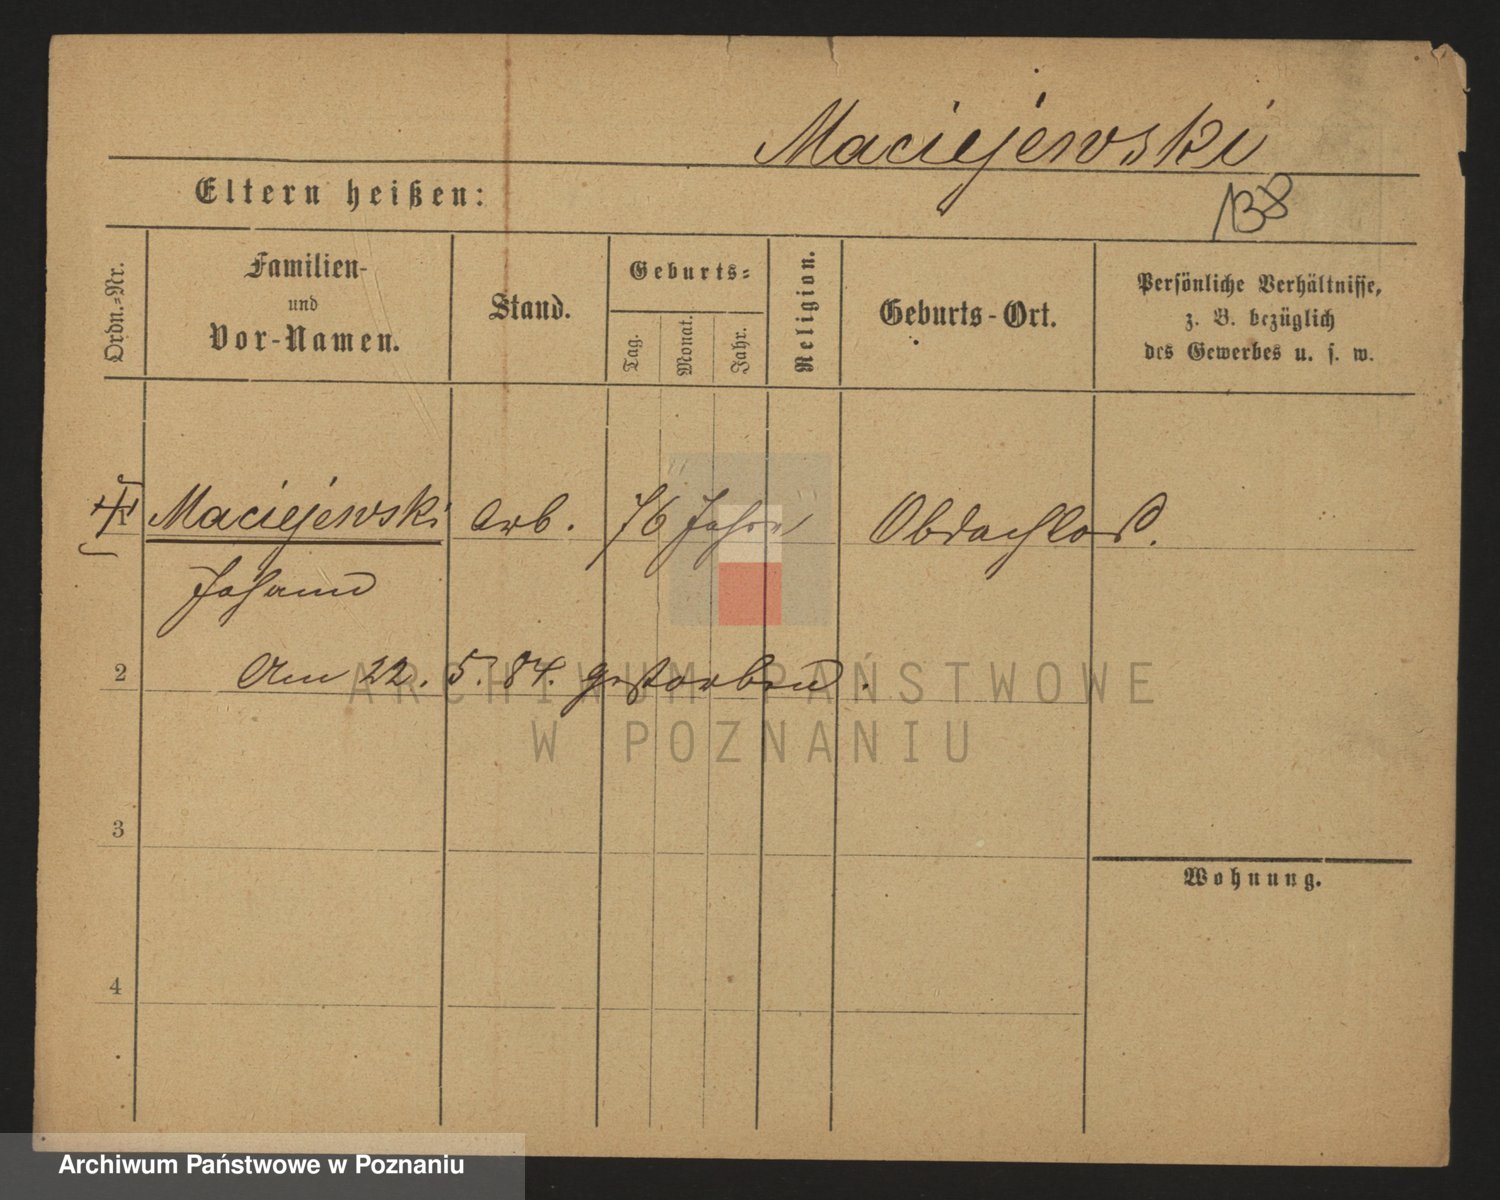 Maciejewski
138
Eltern heißen:
Ordn.=Nr.
Familien-
und
Vor-Namen.
Stand.
Geburts=
Tag.
Monat.
Jahr.
Religion.
Geburts-Ort.
Persönliche Verhältnisse,
z. B. bezüglich
des Gewerbes u. s. w.
Maciejewski Arb. 76 Jahre Obdachlos.
Johann
2
Am 22. 5. 84. gestorben.
ARCHIWUM PAŃSTWOWE
W POZNANIU
3
Wohnung.
4
Archiwum Państwowe w Poznaniu